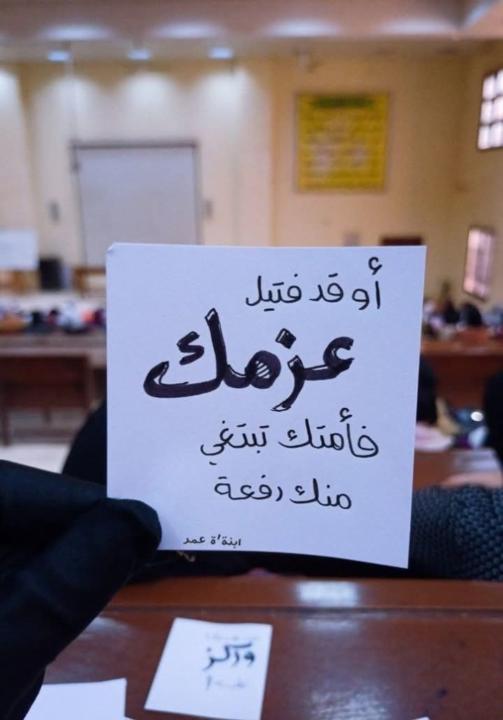 أو قد فتيل
عزمك
فأمتك تبتغي
منك رفعة
ابنة'ة عمر
وركز